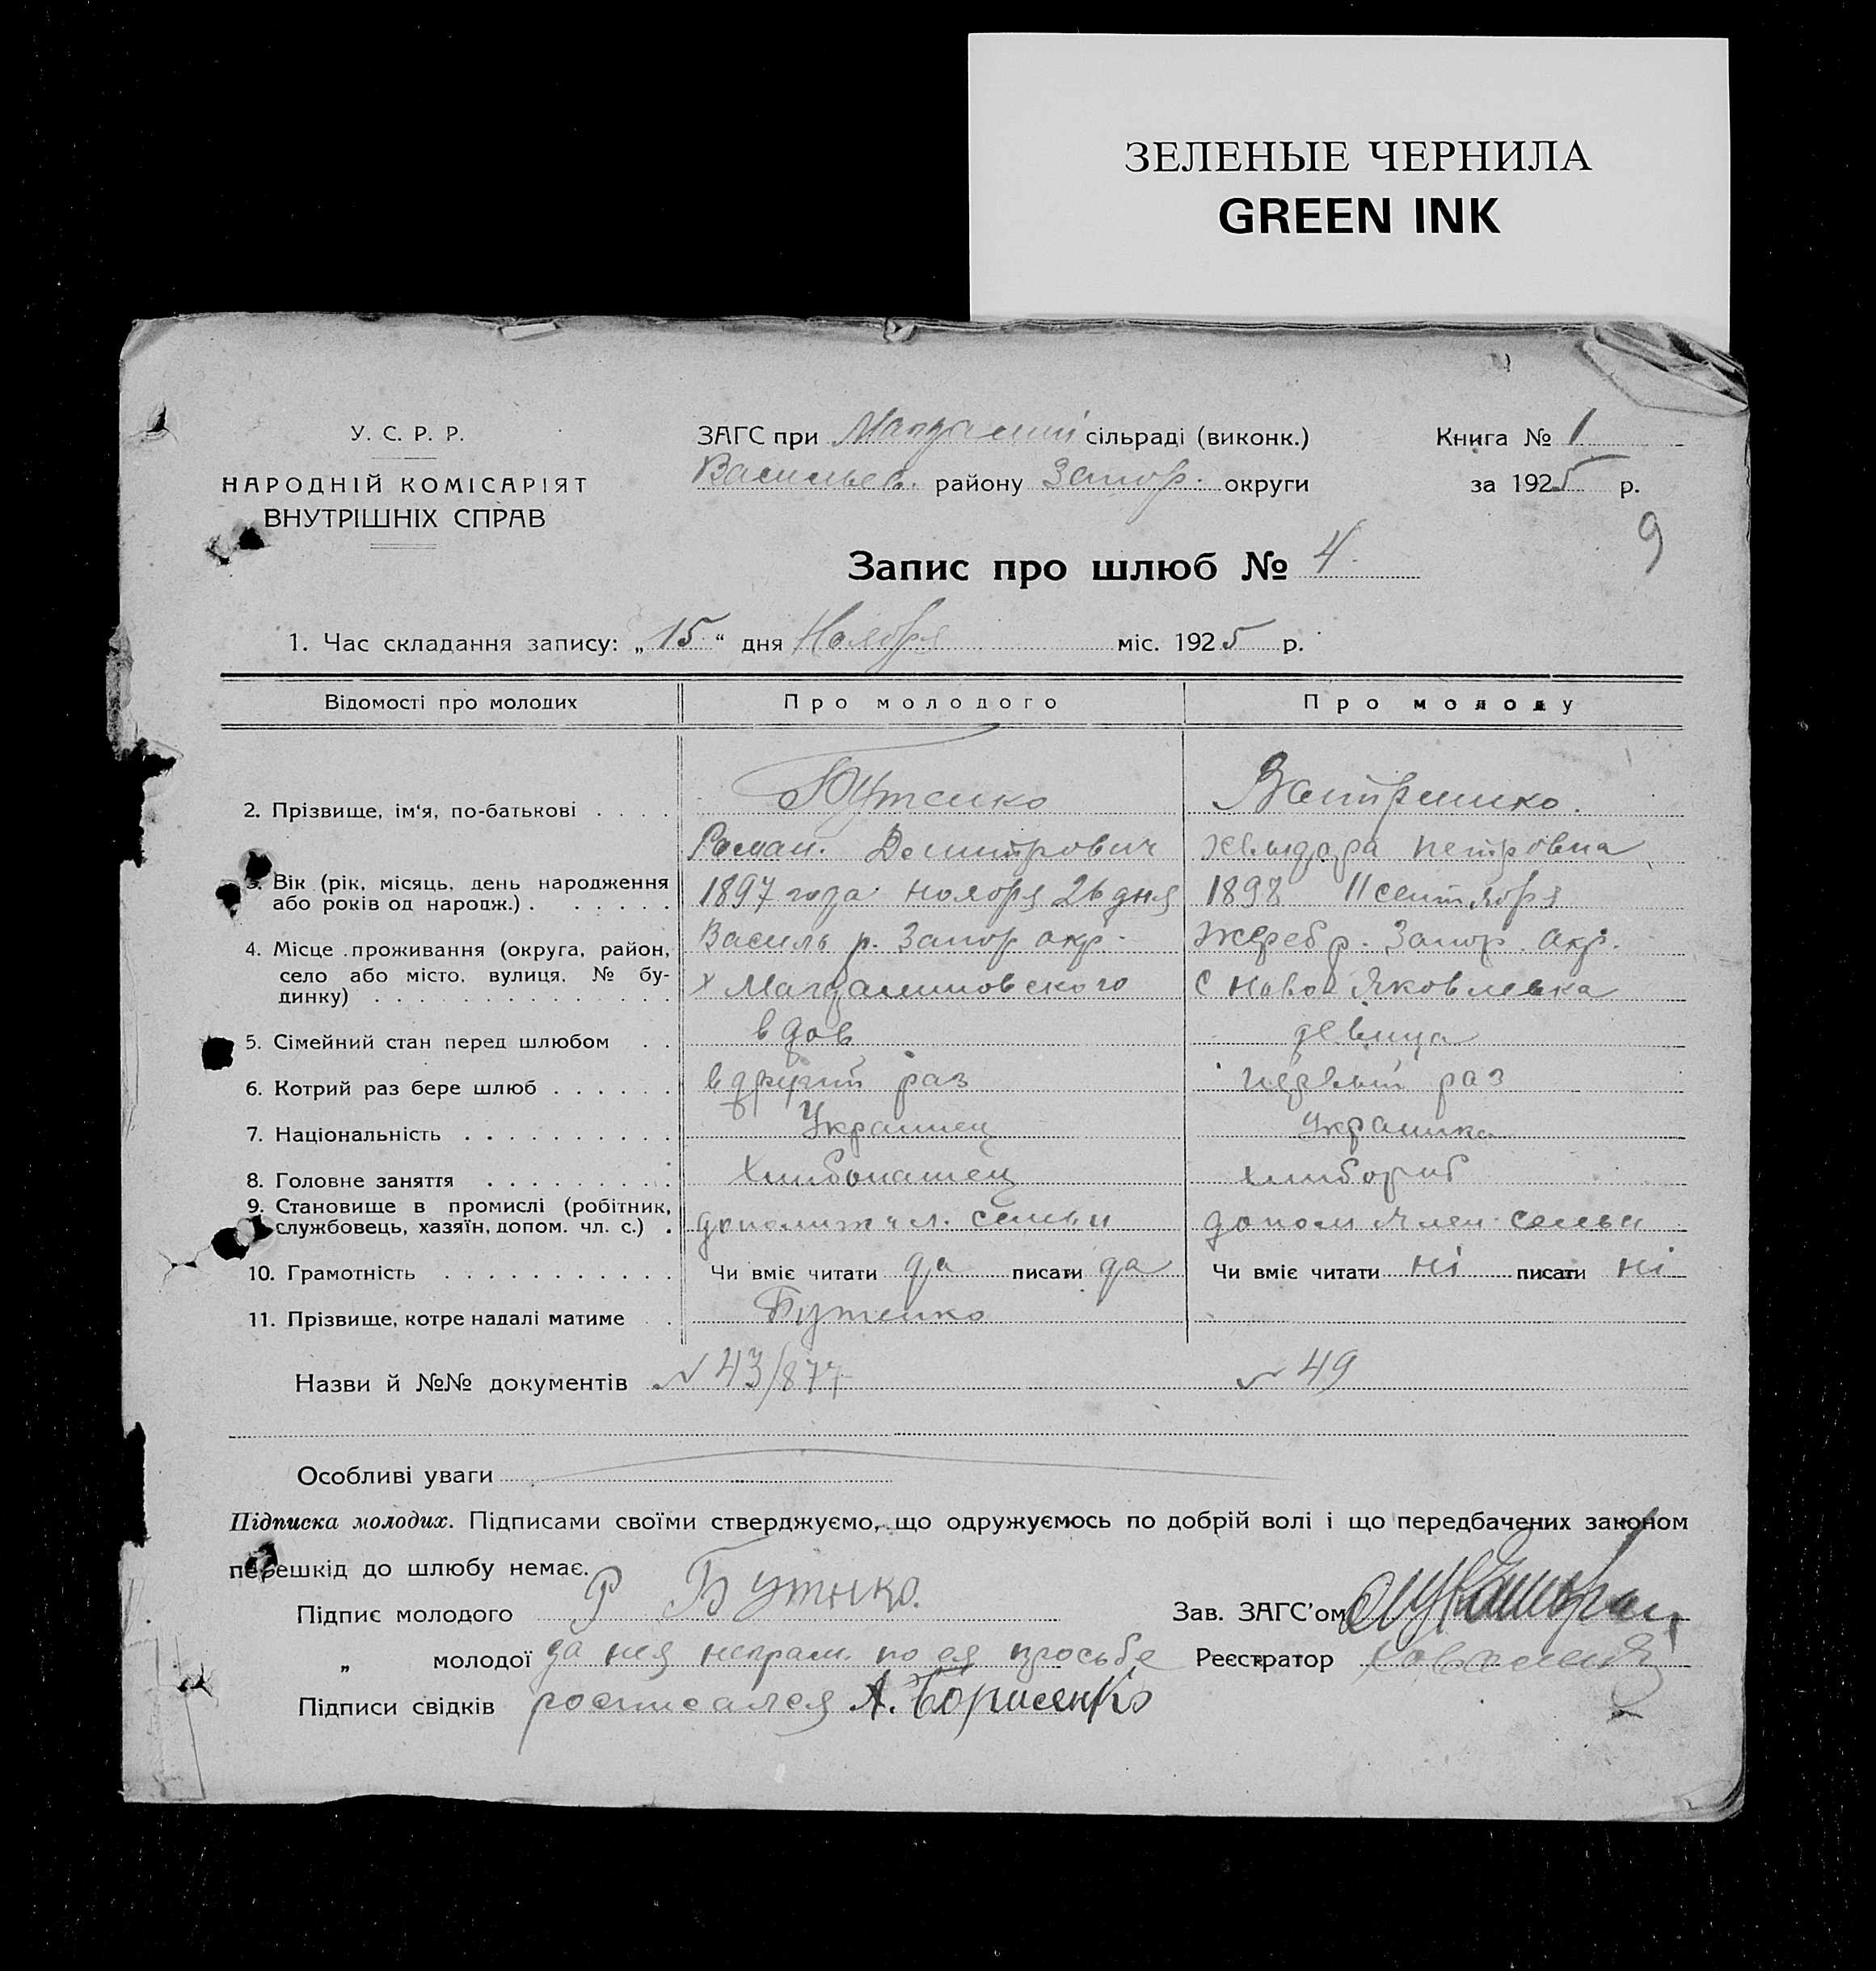 ЗЕЛЕНЫЕ ЧЕРНИЛА
GREEN INK
У. С. Р. Р.
НАРОДНІЙ КОМІСАРІЯТ
ВНУТРІШНІХ СПРАВ
ЗАГС при сільраді (виконк.)
Васильев. району Запор. округи
Книга № 1
за 1925 р.
9
Запис про шлюб № 4.
1. Час складання запису: „15“ дня Ноября міс. 1925 р.
Відомості про молодих Про молодого Про молоду
2. Прізвище, ім'я, по-батькові Бутенко
Роман. Демитрович Петровна
3. Вік (рік, місяць, день народження або років од народж.) 1897 года ноября 26 дня 1898 11 сентября
4. Місце проживання (округа, район, Василь р. Запор окр. Жереб р. Запор. окр.
село або місто, вулиця, № бу-динку) х Магдалиновского с Ново Яковлевка
5. Сімейний стан перед шлюбом вдов девица
6. Котрий раз бере шлюб в другий раз первый раз
7. Національність Украинец Украинка
8. Головне заняття Хлибопашец хлибориб
9. Становище в промислі (робітник, службовець, хазяїн, допом. чл. с.) допомиж чл. семьи допом член семьи
10. Грамотність Чи вміє читати да писати да Чи вміє читати ні писати ні
11. Прізвище, котре надалі матиме Бутенко
Назви й №№ документів № 43/877 № 49
Особливі уваги
Підписка молодих. Підписами своїми стверджуємо, що одружуємось по добрій волі і що передбачених законом
перешкід до шлюбу немає.
Підпис молодого Р Бутнко. Зав. ЗАГС'ом
„ молодої за нея неграм. по ея просьбе Реєстратор
Підписи свідків росписался А. Борисенко